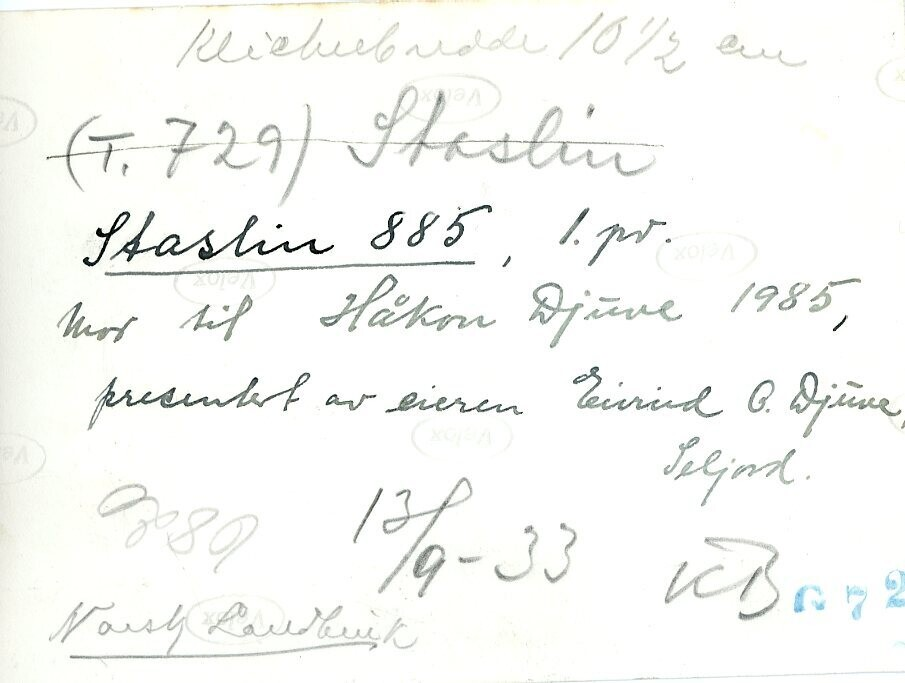 Klichebredde 10 1/2 cm
(T. 729) Staslin
Staslin 885, 1. pr.
Mor til Håkon Djuve 1985,
presentert av eieren Eivind O. Djuve,
Seljord.
13/9-33
KB
672
Norsk Landbruk
Velox